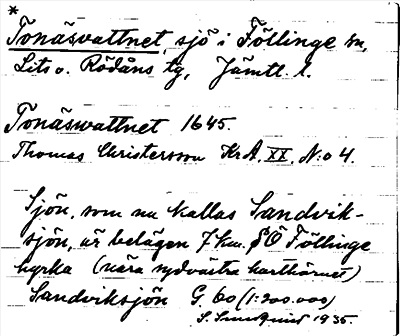 *
Tonäsvattnet, sjö i Föllinge sn,
Lits o. Rödöns tg, Jämtl. l.
Tonäswattnet 1645.
Thomas Christersson KrA, XX, N:o 4.
Sjön, som nu kallas Sandvik-
sjön, är belägen 7 km. SÖ Föllinge
kyrka (nära sydvästra karthörnet)
Sandviksjön G. 60 (1:200.000)
S. 1935.